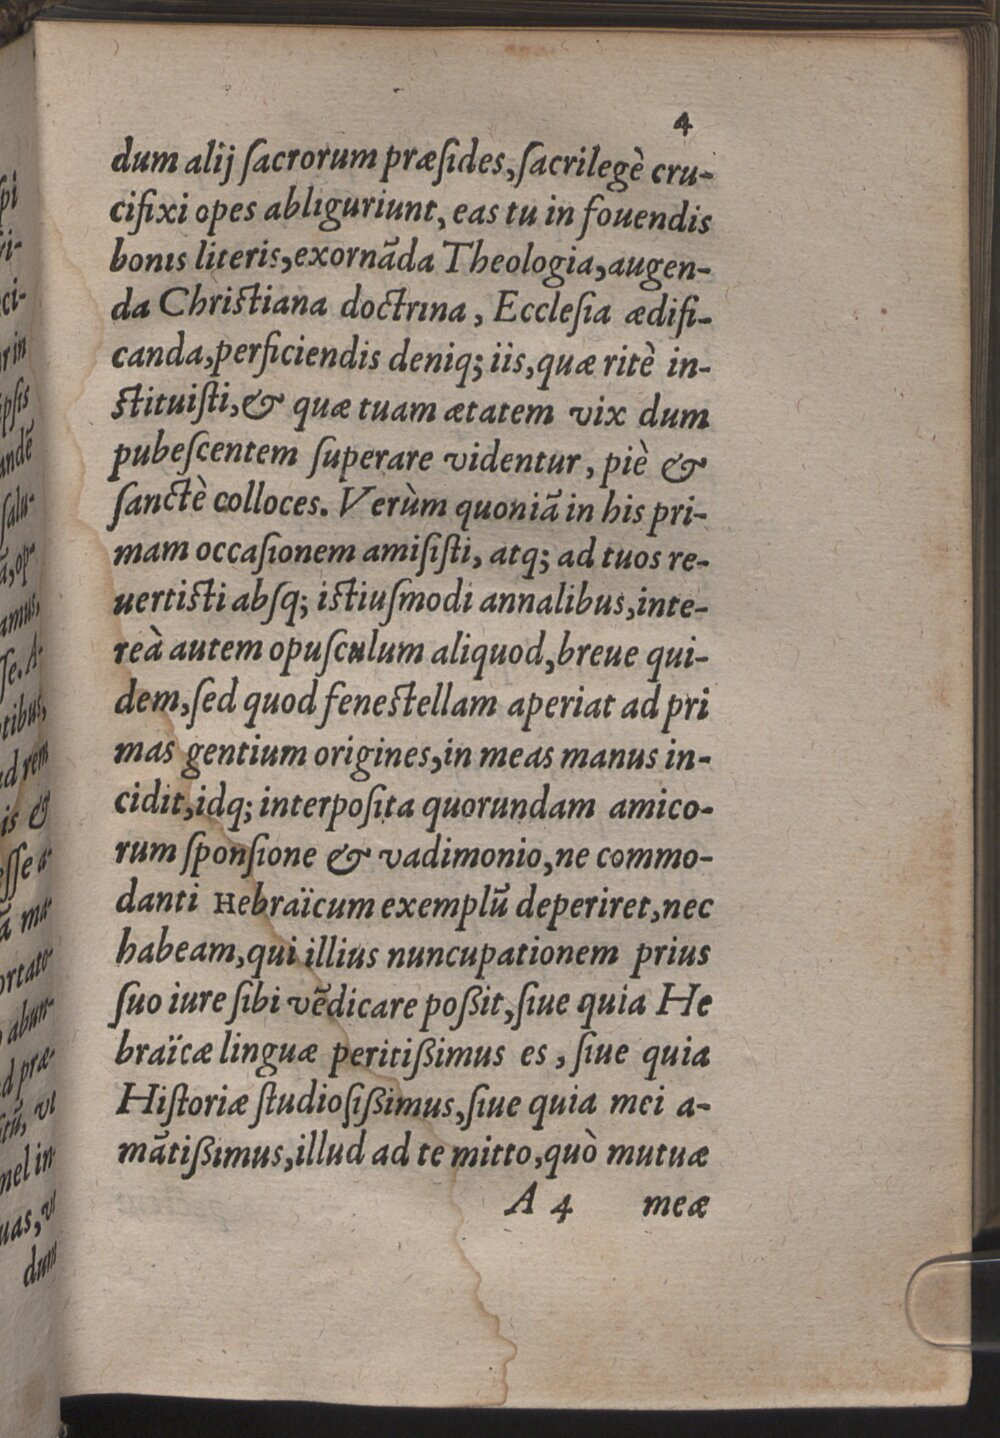 4
dum alij ſacrorum præſides, ſacrilegè cru-
cifixi opes abliguriunt, eas tu in fouendis
bonis literis, exornãda Theologia, augen-
da Chriſtiana doctrina, Eccleſia ædifi-
canda, perficiendis deniq; iis, quæ ritè in-
ſtituiſti, & quæ tuam ætatem vix dum
pubeſcentem ſuperare videntur, piè &
ſanctè colloces. Verùm quoniã in his pri-
mam occaſionem amiſiſti, atq; ad tuos re-
uertiſti abſq; iſtiuſmodi annalibus, inte-
reà autem opuſculum aliquod, breue qui-
dem, ſed quod feneſtellam aperiat ad pri
mas gentium origines, in meas manus in-
cidit, idq; interpoſita quorundam amico-
rum ſponſione & vadimonio, ne commo-
danti Hebraïcum exemplũ deperiret, nec
habeam, qui illius nuncupationem prius
ſuo iure ſibi vẽdicare poßit, ſiue quia He
braïcæ linguæ peritißimus es, ſiue quia
Hiſtoriæ ſtudioſißimus, ſiue quia mei a-
mãtißimus, illud ad te mitto, quò mutuæ
A 4 meæ
ſpi
vi-
ci-
r in
ipſis
andẽ
ſalu-
ã, op-
amus,
ſſe. A-
tibus,
ad rem
is &
eſſe a-
ã ma-
ortato-
abun-
d præ-
ſtũ, vt
mel in-
uas, vt
dum